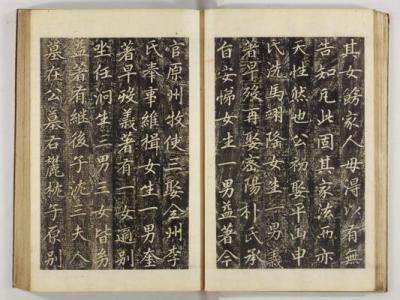 其女餝家人毋得以有無
告知凡此固其家法而亦
天性然也公初娶平山申
氏洗馬翊隆女生一男義
著早歿再娶密陽朴氏承
旨安悌女生一男益著今
官原州牧使三娶全州李
氏奉事維楫女生一男奎
著早歿義著有一女適別
坐任泂生二男三女皆幼
益著有継後子三夫人
墓在公墓右麓枕子原別